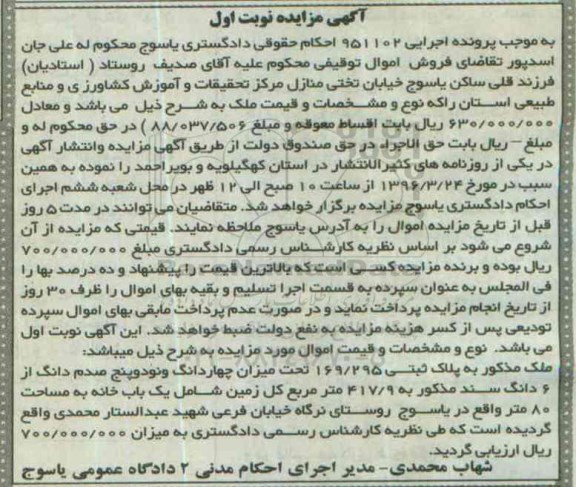 آگهی مزایده نوبت اول
به موجب پرونده اجرایی ۹۵۱۱۰۲ احکام حقوقی دادگستری یاسوج محکوم له علی جان
اسدپور تقاضای فروش اموال توقیفی محکوم علیه آقای صدیف روستاد ( استادیان)
فرزند قلی ساکن یاسوج خیابان تختی منازل مرکز تحقیقات و آموزش کشاورزی و منابع
طبیعی استان راکه نوع و مشخصات و قیمت ملک به شرح ذیل می باشد و معادل
۶۳۰/۰۰۰/۰۰۰ ریال بابت اقساط معوقه و مبلغ ۸۸/۰۳۷/۵۰۶ ) در حق محکوم له و
مبلغ – ریال بابت حق الاجراء در حق صندوق دولت از طریق آگهی مزایده وانتشار آگهی
در یکی از روزنامه های کثیرالانتشار در استان کهگیلویه و بویراحمد را نموده به همین
سبب در مورخ ۱۳۹۶/۳/۲۴ از ساعت ۱۰ صبح الی ۱۲ ظهر در محل شعبه ششم اجرای
احکام دادگستری یاسوج مزایده برگزار خواهد شد. متقاضیان می توانند در مدت ۵ روز
قبل از تاریخ مزایده اموال را به آدرس یاسوج ملاحظه نمایند. قیمتی که مزایده از آن
شروع می شود بر اساس نظریه کارشناس رسمی دادگستری مبلغ ۷۰۰/۰۰۰/۰۰۰
ریال بوده و برنده مزایده کسی است که بالاترین قیمت را پیشنهاد و ده درصد بها را
فی المجلس به عنوان سپرده به قسمت اجرا تسلیم و بقیه بهای اموال را ظرف ۳۰ روز
از تاریخ انجام مزایده پرداخت نماید و در صورت عدم پرداخت مابقی بهای اموال سپرده
تودیعی پس از کسر هزینه مزایده به نفع دولت ضبط خواهد شد. این آگهی نوبت اول
می باشد. نوع و مشخصات و قیمت اموال مورد مزایده به شرح ذیل میباشد:
ملک مذکور به پلاک ثبتی ۱۶۹/۲۹۵ تحت میزان چهاردانگ ونودوپنج صدم دانگ از
۶ دانگ سند مذکور به ۴۱۷/۹ متر مربع کل زمین شامل یک باب خانه به مساحت
۸۰ متر واقع در یاسوج روستای نرگاه خیابان فرعی شهید عبدالستار محمدی واقع
گردیده است که طی نظریه کارشناس رسمی دادگستری به میزان ۷۰۰/۰۰۰/۰۰۰
ریال ارزیابی گردید.
شهاب محمدی- مدیر اجرای احکام مدنی ۲ دادگاه عمومی یاسوج